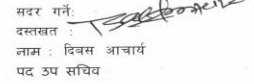 सदर गर्नेः
दस्तखत :
नाम : दिवस आचार्य
पद उप सचिव